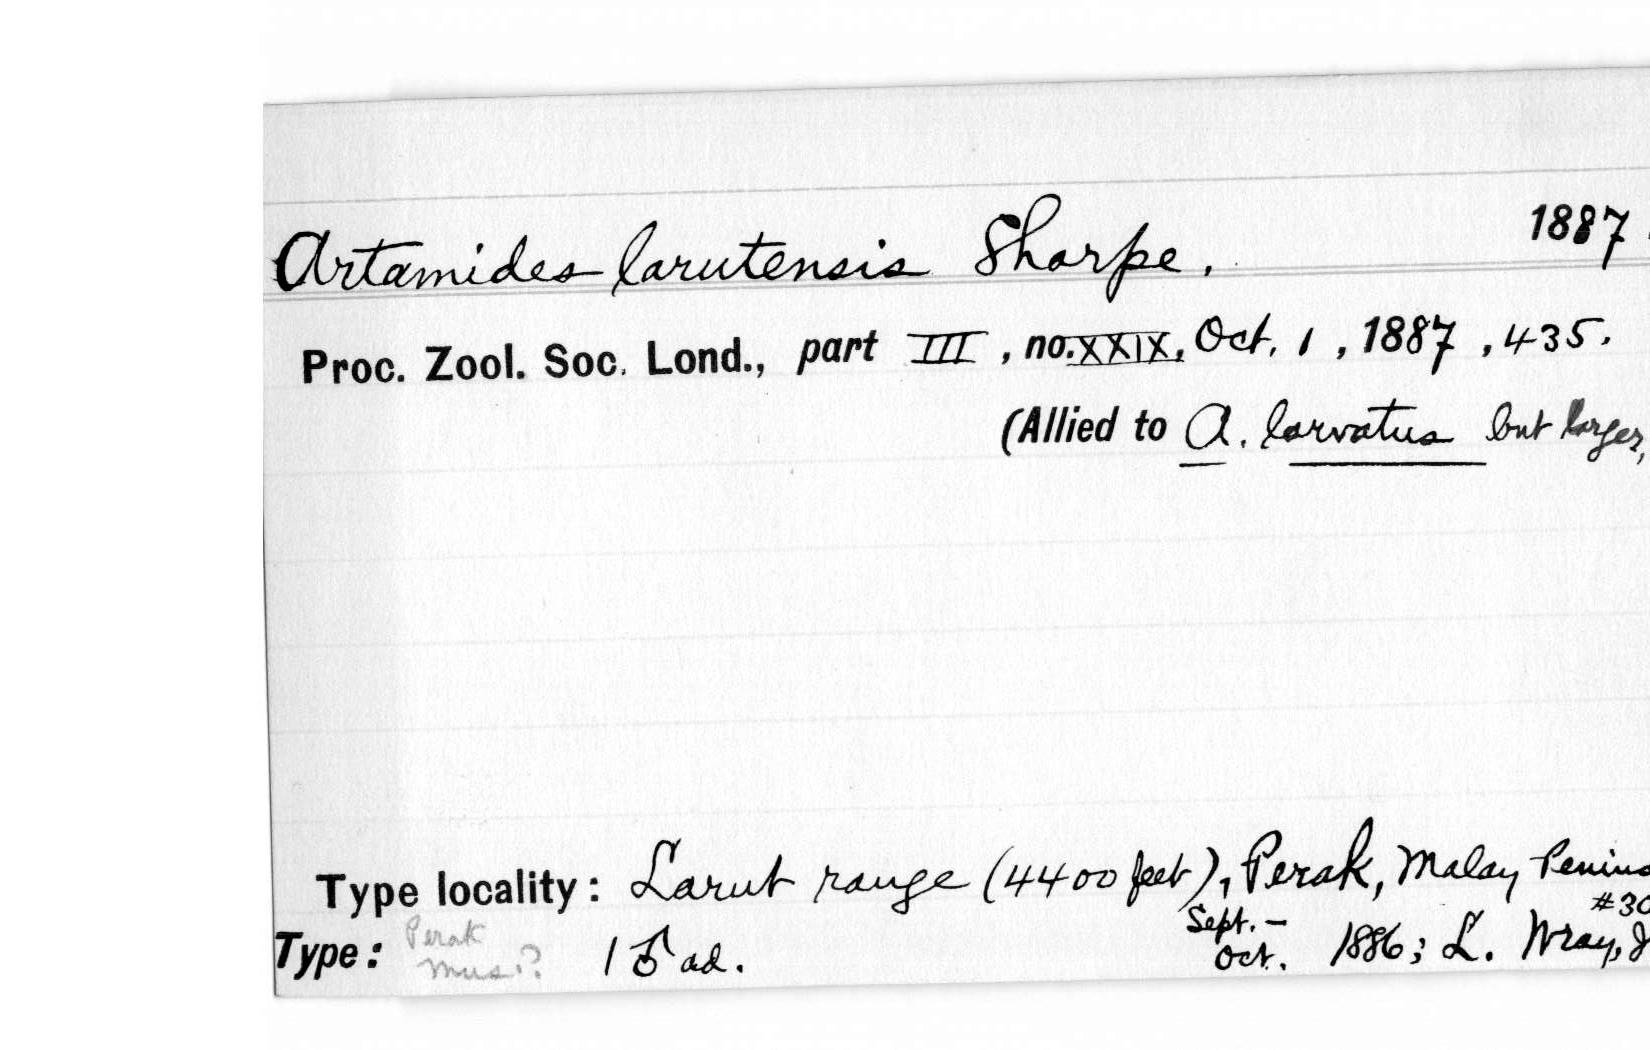 Artamides larutensis Sharpe. 1887
Proc. Zool. Soc. Lond., part III, no. XXIX, Oct. 1, 1887, 435.
(Allied to A. larvatus but larger,
Type locality: Larut range (4400 feet), Perak, Malay Penins
#30
Type: Perak Mus.? 1 ♂ ad. Sept. - Oct. 1886; L. Wray, J